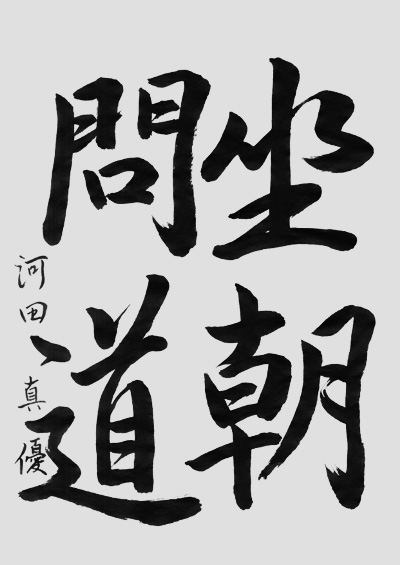 坐朝
問道
河田真優